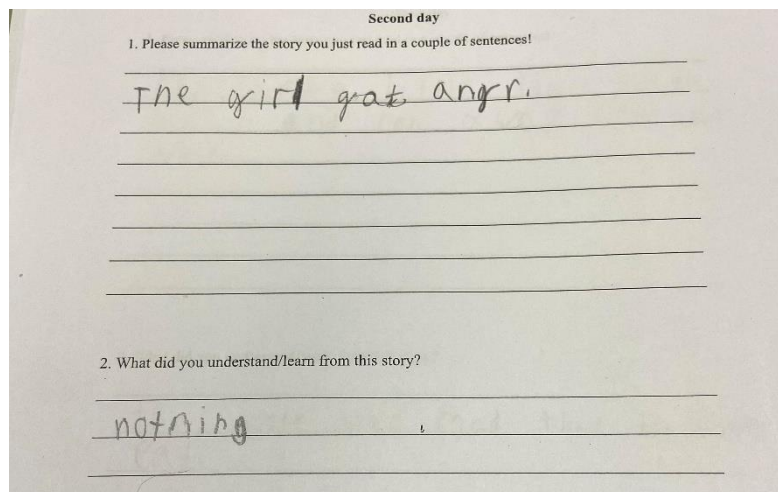 Second day
1. Please summarize the story you just read in a couple of sentences!
The girl gat angr.
2. What did you understand/learn from this story?
nothing